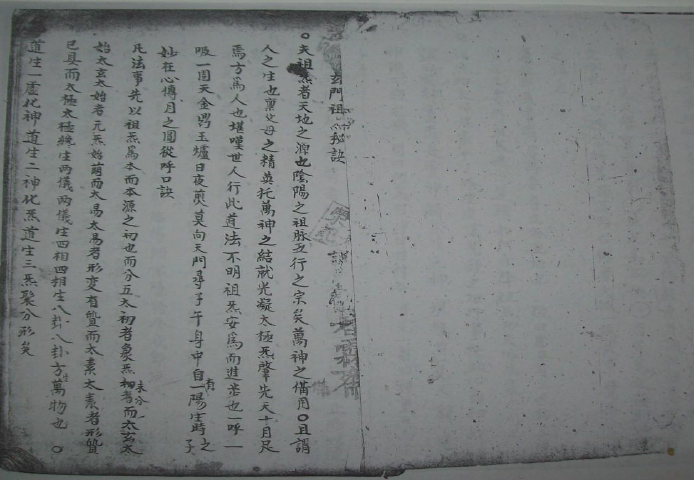 玄門祖炁秘訣
○夫祖炁者天地之淵也陰陽之祖脉五行之宗矣萬神之備用○且謂
人之生也稟父母之精英托萬神之結就光凝太極炁肇先天十月足
焉方為人也堪嘆世人行此道法不明祖炁安為而進者也一呼一
吸一周天金男玉爐日夜煎莫向天門尋子午身中自有一陽生時之子
妙在心傳目之圓從呼口訣
凡法事先以祖炁為本而本源之初也而分五太初者象炁初者未分而太玄太
始太玄太始者元炁始萌而太易太易者形变有質而太素太素者形質
已具而太極太極統生两儀两儀生四相四相生八卦八卦方生萬物也○
道生一虛化神道生二神化炁道生三炁聚分形矣